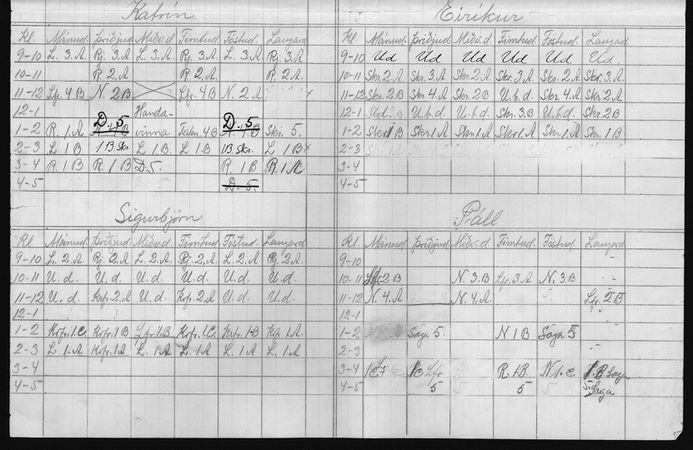 Katrín
Kl. Mánud. Þriðjud. Miðv.d. Fimtud. Föstud. Laugard.
9-10 L. 3.A Rj. 3.A L. 3.A Rj. 3.A L. 3.A Rj. 3.A
10-11 R. 2.A R. 2.A R. 2.A
11-12 Lfr. 4B N. 2B Lfr. 4B N. 2.A x
12-1 Handa-
1-2 R. 1.A D. 5 vinna 4B D. 5 Skr. 5.
2-3 L. 1B 1B Skr. L. 1B L. 1B 1B Skr. L. 1B x
3-4 R. 1B R. 1B D. 5. R. 1B R. 1.A
4-5 D. 5.
Eiríkur
Kl. Mánud. Þriðjud. Miðv.d. Fimtud. Föstud. Laugard.
9-10 Ud Ud Ud Ud Ud Ud
10-11 Skr. 2.A Skr. 3.A Skr. 2.A Skr. 3.A Skr. 2.A Skr. 3.A
11-12 Skr. 2B Skr. 4.A Skr. 2B U.b.d. Skr. 4.A Skr. 2B
12-1 U.b.d. U.b.d. Skr. 3.B U.b.d. Skr. 2B
1-2 Skr. 1B Skr. 1.A Skr. 1.A Skr. 1.A Skr. 1.A Skr. 1B
2-3
3-4
4-5
Sigurbjörn
Kl. Mánud. Þriðjud. Miðv.d. Fimtud. Föstud. Laugard.
9-10 L. 2.A Rj. 2.A L. 2.A Rj. 2.A L. 2.A Rj. 2.A
10-11 U. d. U. d. U. d. U. d. U. d. U. d.
11-12 U. d. Krfr. 2.A U. d. Krfr. 2.A U. d. U. d.
12-1
1-2 Krfr. 1.C Krfr. 1.B Lfr. 1.B Krfr. 1.C. Krfr. 1.B Kfr. 1.A
2-3 L. 1.A Krfr. 1.A L. 1.A L. 1.A L. 1.A L. 1.A
3-4
4-5
Páll
Kl. Mánud. Þriðjud. Miðv.d. Fimtud. Föstud. Laugard.
9-10
10-11 Lfr. 2B N. 3.B Lfr. 3.A N. 3.B
11-12 N. 4.A N. 4.A Lfr. 2B
12-1
1-2 Saga 5. N 1B Saga 5
2-3
3-4 1C Lfr R. 1B. N 1.C 1.B Saga
4-5 5 5 5. Saga